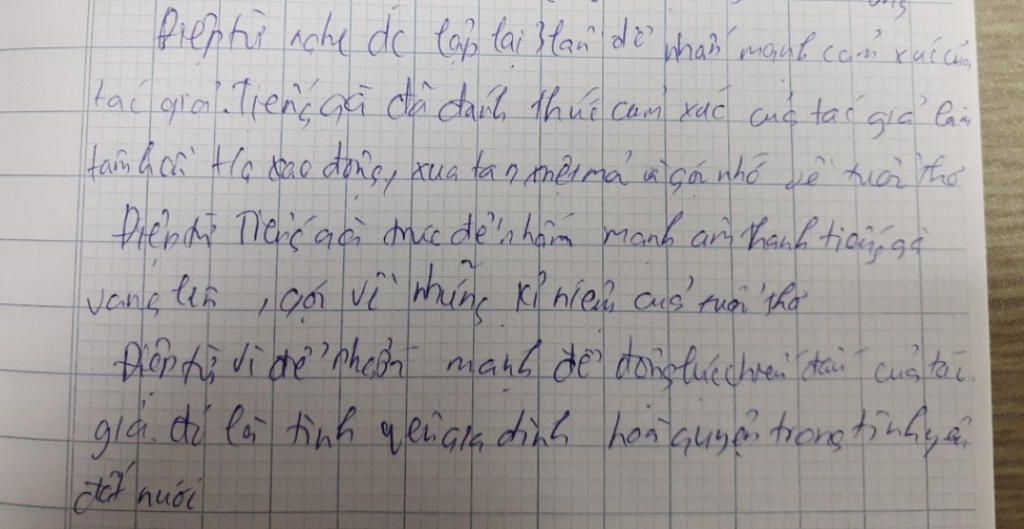 Điệp từ nghe đc lặp lại 3 lần để nhấn mạnh cảm xúc của
tác giả. Tiếng gà đã đánh thức cảm xúc của tác giả làm
tâm hồn t/g xao động, xua tan mệt mỏi gợi nhớ về tuổi thơ
Điệp từ Tiếng gà trưa để nhấn mạnh âm thanh tiếng gà
vang lên, gợi về những kỉ niệm của tuổi thơ
Điệp từ vì để nhấn mạnh để động lực chiến đấu của tác
giả. đó là tình yêu gia đình hoà quyện trong tình yêu
đất nước